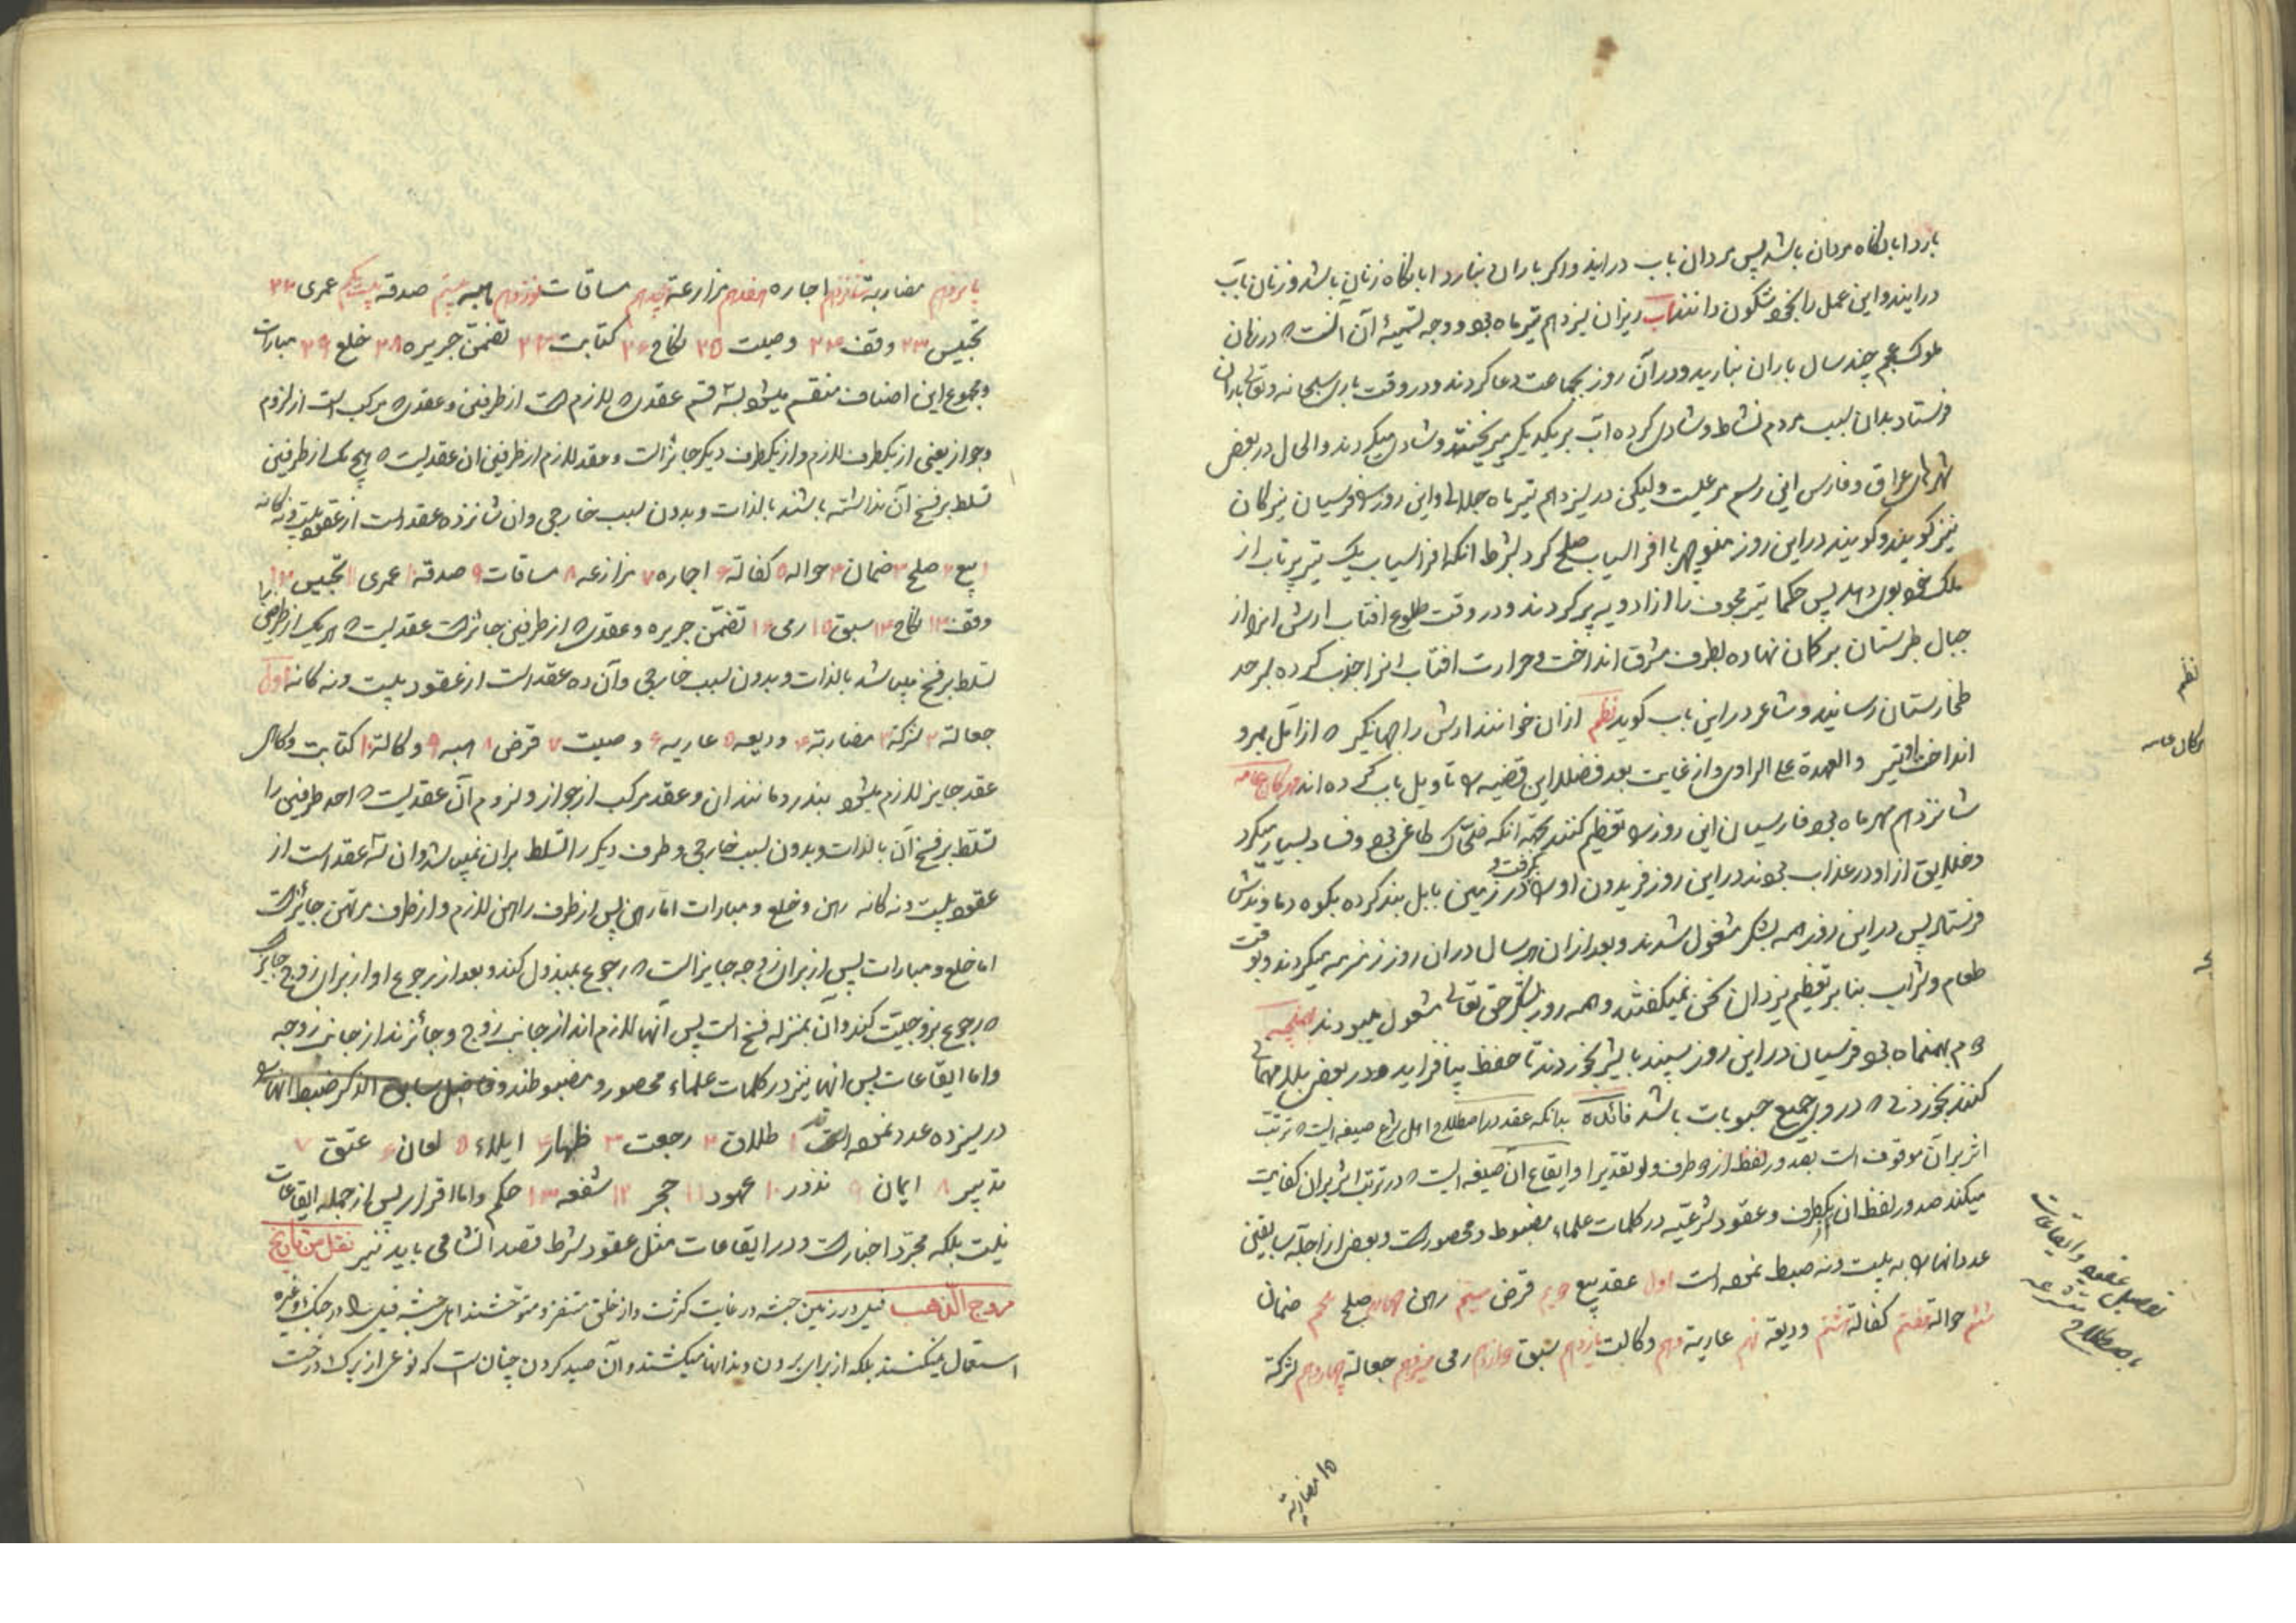 بارد ابابگاه مردان باشد پس مردان باب درایند و اگر باران نبارد ابابگاه زنان باشد و زنان باب
درایند و این عمل را بخود شکون دانند اب ریزان سیزدهم تیر ماه بود و وجه تسمیهٔ آن آنست که در زمان
ملوک عجم چند سال باران نبارید و در آن روز بجماعت دعا کردند و در وقت باری سبحانه و تعالی باران
فرستاد بدان سبب مردم نشاط و شادی کرده آب بر یکدیگر میریختند و شادی میکردند و الحال در بعض
شهرهای عراق و فارس این رسم مرعیست ولیکن در سیزدهم تیر ماه جلالی و این روز را فرسیان تیرکان
نیز گویند و گویند در این روز منوچهر با افراسیاب صلح کرد بشرط انکه افراسیاب یک تیر پرتاب از
ملک خود بوی دهد پس حکما تیر مجوف را از ادویه پر کردند و در وقت طلوع افتاب ارش انرا از
جبال طبرستان بر کمان نهاده بطرف مشرق انداخت و حرارت افتاب انرا جذب کرده بسرحد
طخارستان رسانید و شاعر در این باب کوید نظم ازان خوانند ارش را کمانکیر که از آمل بمرو
انداخت او تیر والعهدة علی الراوی و از غایت بعد فضلا این قضیه را تاویل باب کرده اند مهرکان عامه
شانزدهم مهر ماه بود فارسیان این روز را تعظیم کنند بجهة انکه ضحاک طاغی بود و فساد بسیار میکرد
و خلایق از او در عذاب بودند در این روز فریدون او را بگرفت و در زمین بابل بند کرده بکوه دماوندش
فرستاد پس در این روز همه بشکر مشغول شدند و بعد از ان هر سال دران روز زمزمه میکردند و بوقت
طعام و شراب بنابر تعظیم یزدان سخن نمیکفتند و همه روز بشکر حق تعالی مشغول میبودند بهمنجنه
دوم بهمنماه بود فرسیان در این روز سپند با شیر بخوردند تا حفظ بیافزاید و در بعض بلاد مهمانی
کنند بخوردنی که در وی جمیع حبوبات باشد فائدة بدانکه عقد در اصطلاح اهل شرع صیغه ایست که ترتب
اثر بر آن موقوف است بصدور لفظ از دو طرف ولو تقدیرا و ایقاع آن صیغه ایست که در ترتب اثر بر ان کفایت
میکند صدور لفظ از یکطرف و عقود شرعیه در کلمات علماء مضبوط و محصور است و بعض از اجله سابقین
عدد انها را به بیست و نه ضبط نموده است اول عقد بیع دویم قرض سیم رهن چهارم صلح پنجم ضمان
ششم حواله هفتم کفالة هشتم ودیعة نهم عاریة دهم وکالت یازدهم سبق دوازدهم رمی سیزدهم جعالة چهاردهم شرکة
نظم
مهرکان عامه
توصیل عقود و ایقاعات
باصطلاح متشرعه
۱۵ مضاربة
پانزدهم مضاربة شانزدهم اجاره هفدهم مزارعة هجدهم مساقات نوزدهم هبه بیستم صدقة بیست یکم عمری ۲۲
تحبیس ۲۳ وقف ۲۴ وصیت ۲۵ نکاح ۲۶ کتابت ۲۷ تضمن جریره ۲۸ خلع ۲۹ مبارات
و مجموع این اصناف منقسم میشود بسه قسم عقدی که لازم است از طرفین و عقدی که مرکب است از لزوم
و جواز یعنی از یکطرف لازم و از یکطرف دیگر جائز است و عقد لازم از طرفین ان عقدیست که هیچ یک از طرفین
تسلط بر فسخ آن نداشته باشند بالذات و بدون سبب خارجی و ان شانزده عقد است از عقود بیست و نه کانه
۱ بیع ۲ صلح ۳ ضمان ۴ حواله ۵ کفالة ۶ اجاره ۷ مزارعه ۸ مساقات ۹ صدقة ۱۰ عمری ۱۱ تحبیس ۱۲
وقف ۱۳ نکاح ۱۴ سبق ۱۵ رمی ۱۶ تضمن جریره و عقدی که از طرفین جائز است عقدیست که هر یک از طرفین را
تسلط بر فسخ میباشد بالذات و بدون سبب خارجی و آن ده عقد است از عقود بیست و نه کانه اول
جعالة ۲ شرکة ۳ مضاربة ۴ ودیعه ۵ عاریه ۶ وصیت ۷ قرض ۸ هبه ۹ وکالة ۱۰ کتابت و کاهی
عقد جایز لازم میشود بنذر و مانند ان و عقد مرکب از جواز و لزوم آن عقدیست که احد طرفین را
تسلط بر فسخ آن بالذات و بدون سبب خارجی و طرف دیگر را تسلط بران نمیباشد و ان سه عقد است از
عقود بیست و نه کانه رهن و خلع و مبارات اما رهن پس از طرف راهن لازم و از طرف مرتهن جائز است
اما خلع و مبارات پس از برای زوجه جایز است که رجوع بمبذول کند و بعد از رجوع او از برای زوج جایز است
که رجوع بزوجیت کند و آن بمنزله فسخ است پس آنها لازم اند از جانب زوج و جائزند از جانب زوجه
و اما ایقاعات پس انها نیز در کلمات علماء محصور و مضبوطند و فاضل سابق الذکر ضبط انها را
در سیزده عدد نموده است ۱ طلاق ۲ رجعت ۳ ظهار ۴ ایلاء ۵ لعان ۶ عتق ۷
تدبیر ۸ ایمان ۹ نذور ۱۰ عهود ۱۱ حجر ۱۲ شفعه ۱۳ حکم و اما اقرار پس از جمله ایقاعات
نیست بلکه مجرد اخبار است و در ایقاعات مثل عقود شرط قصد انشا می باید نیز نقل من تاریخ
مروج الذهب فیل در زمین حبشه در غایت کثرت و از خلق متنفر و متوحشند اهل حبشه فیل را در جنک و غیره
استعمال نمیکنند بلکه از برای بردن دندانها میکشند و آن صید کردن چنان است که نوعی از برک درخت